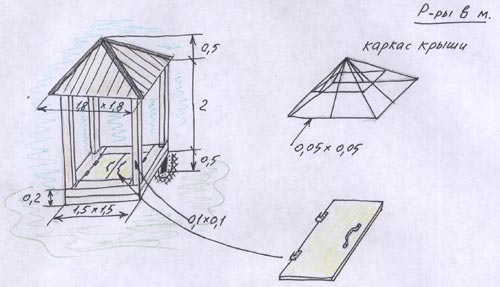 Р-ры в м.
каркас крыши
0,5
1,8 × 1,8
2
0,05 × 0,05
0,5
0,2
1,5 × 1,5
0,1 × 0,1